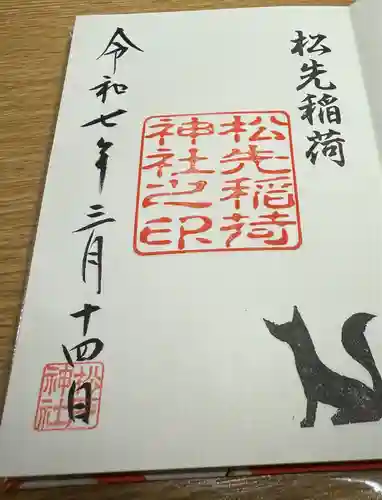 松先稲荷
松先稲荷
神社之印
令和七年三月十四日
神社